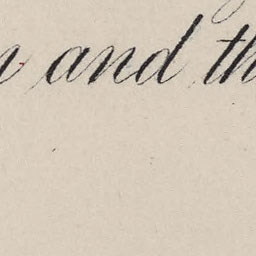 and th